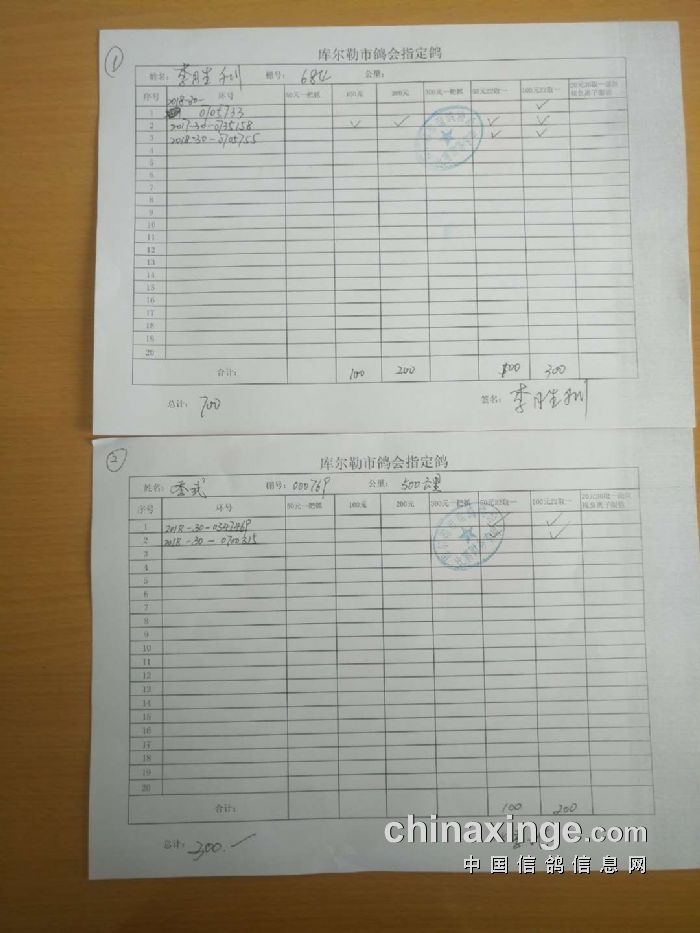 ①
库尔勒市鸽会指定鸽
姓名: 李月生 棚号: 684 公里:
序号 环号 50元一把抓 100元 200元 300元一把抓 50元22取一 100元22取一
2018-30-
1 0705733 ✓
2 2017-30-0735158 ✓ ✓ ✓ ✓
3 2018-30-0705755 ✓ ✓
4
5
6
7
8
9
10
11
12
13
14
15
16
17
18
19
20
合计: 100 200 100 300
总计: 700 签名: 李月生
②
库尔勒市鸽会指定鸽
姓名: 李武 棚号: 000769 公里: 500公里
序号 环号 50元一把抓 100元 200元 300元一把抓 50元22取一 100元22取一
1 2018-30-0347469 ✓ ✓
2 2018-30-0700315 ✓ ✓
3
4
5
6
7
8
9
10
11
12
13
14
15
16
17
18
19
20
合计: 100 200
总计: 300.—
chinaxinge.com
中国信鸽信息网